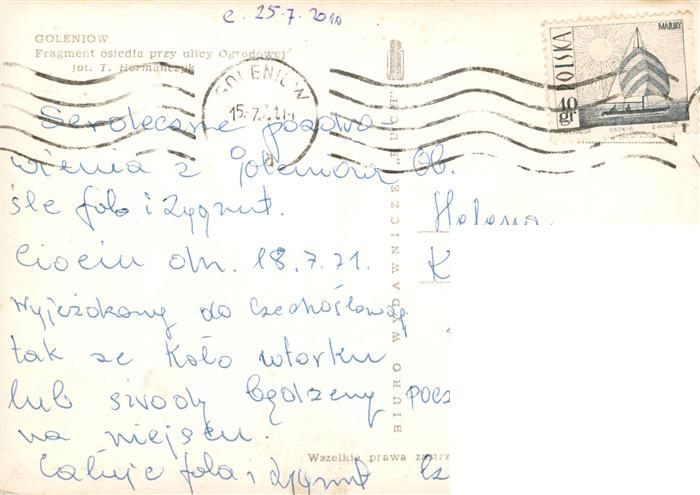 c. 25.7.2010
GOLENIÓW
Fragment osiedla przy ulicy Ogrodowej
fot. T. Hermańczyk
GOLENIÓW
15.7.
POLSKA
MAZURY
40 gr
Serdeczne pozdro-
wienia z Goleniowa
śle Jola i Zygmut.
Ciociu dn. 18.7.71.
Wyjeżdżamy do Czechosłowacj
tak że koło wtorku
lub środy będziemy
na miejscu.
Całuje Jola i Zygmut
BIURO WYDAWNICZE „RUCH”
Ob.
Helena
K
pocz
Wszelkie prawa zastrz